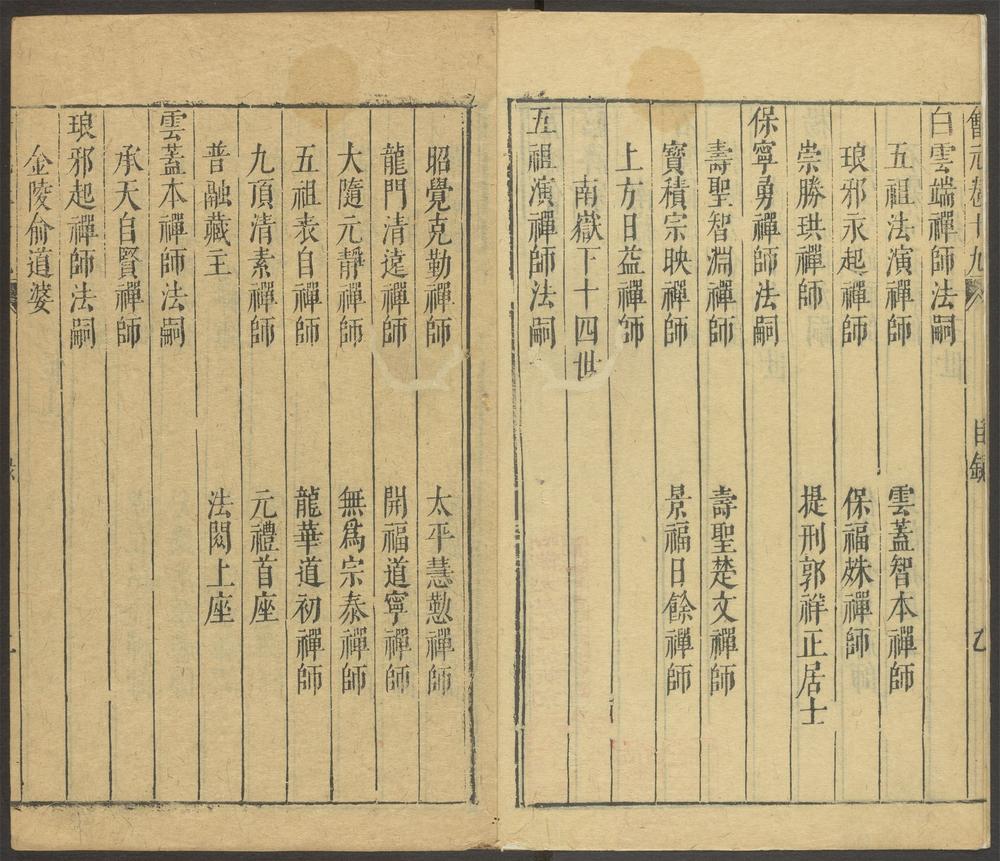 會元卷十九 目錄 乙
白雲端禪師法嗣
五祖法演禪師 雲蓋智本禪師
琅邪永起禪師 保福姝禪師
崇勝珙禪師 提刑郭祥正居士
保寧勇禪師法嗣
壽聖智淵禪師 壽聖楚文禪師
寶積宗映禪師 景福日餘禪師
上方日益禪師
南嶽下十四世
五祖演禪師法嗣
昭覺克勤禪師 太平慧懃禪師
龍門清遠禪師 開福道寧禪師
大隨元靜禪師 無爲宗泰禪師
五祖表自禪師 龍華道初禪師
九頂清素禪師 元禮首座
普融藏主 法閦上座
雲蓋本禪師法嗣
承天自賢禪師
琅邪起禪師法嗣
金陵俞道婆